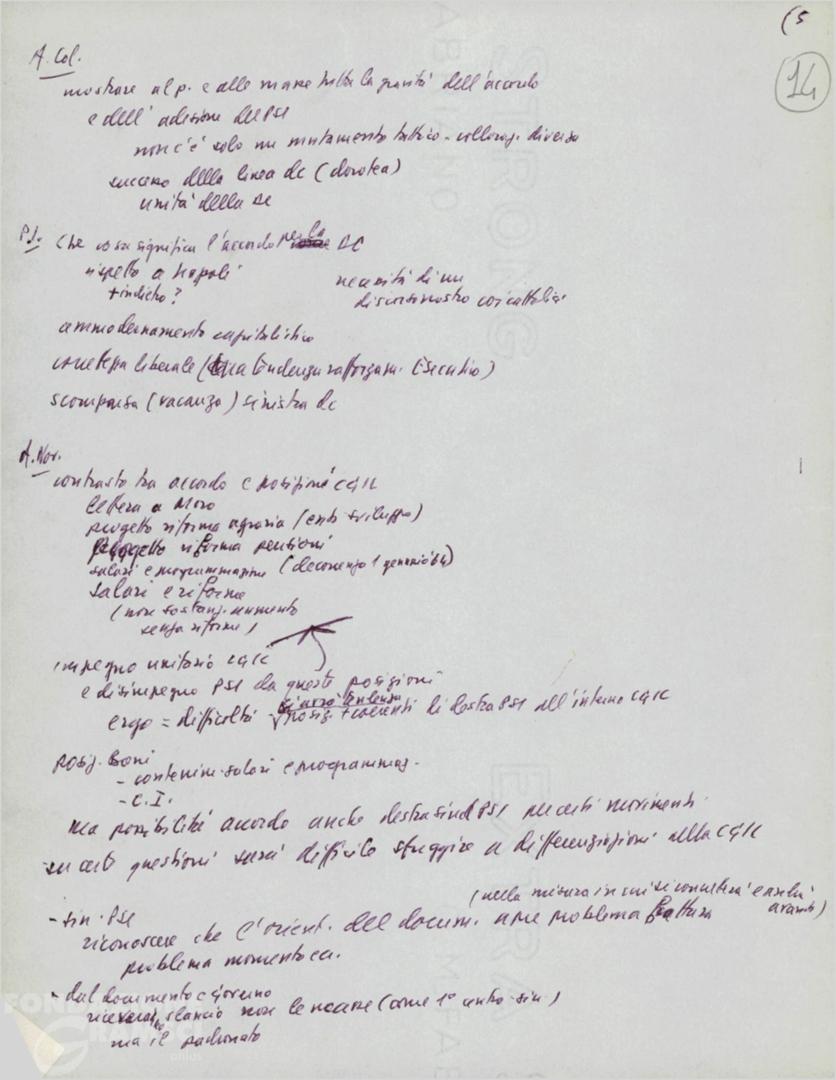 (5
14
A. Col.
mostrare al p. e alle masse tutta la gravità dell'accordo
e dell'adesione del PSI
non c'è solo un mutamento tattico - colloraz. diversa
successo della linea dc (dorotea)
unità della DC
Pi. Che cosa significa l'accordo per la DC
rispetto a Napoli
+ indietro?
necessità di un
discorso nostro coi cattolici
ammodernamento capitalistico
liberale ( tendenza rafforzam. Esecutivo)
scomparsa (vacanza) sinistra dc
A. Nov.
contrasto tra accordo e posizione CGIL
lettera a Moro
progetto riforma agraria (enti sviluppo)
progetto riforma pensioni
salari e programmazione (decorrenza 1 gennaio 64)
salari e riforme
(non sostanz. aumento
senza riforme)
impegno unitario CGIL
e disimpegno PSI da queste posizioni
ergo = difficoltà posiz. + coerenti di destra PSI all'interno CGIL
posiz. Boni
- contenim. salari e programmaz.
- C.I.
ma possibilità accordo anche destra sind PSI per certi movimenti
su certe questioni sarà difficile sfuggire a differenziazioni nella CGIL
(nella misura in cui si consulterà e andrà avanti)
- sin. PSI
riconoscere che l'orient. del docum. apre problema frattura
problema momento
- dal documento governo
slancio non le masse (come 1° centro-sin.)
ma il padronato
FONDAZIONE
GRAMSCI
onlus